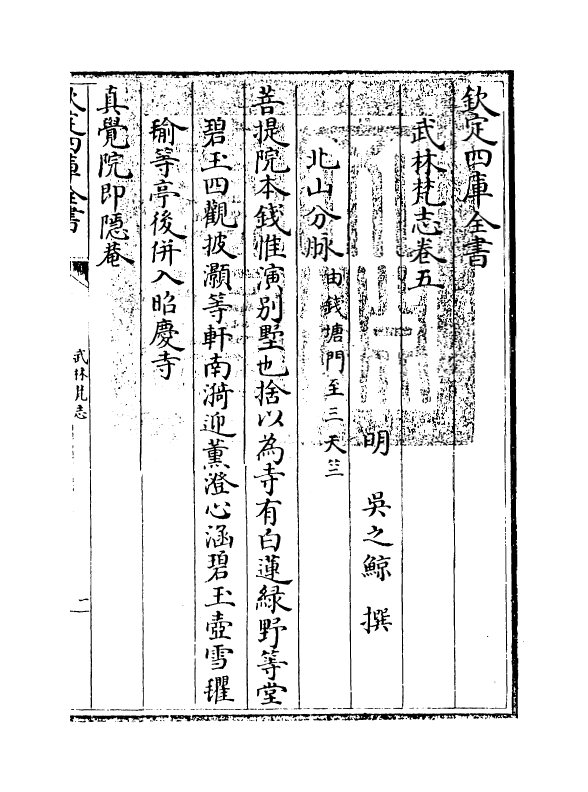 欽定四庫全書
武林梵志卷五
明 吳之鯨 撰
北山分脉由錢塘門至三天竺
菩提院本錢惟演別墅也捨以為寺有白蓮綠野等堂
碧玉四觀披灝等軒南漪迎薰澄心涵碧玉壺雪瓘
瑜等亭後併入昭慶寺
真覺院即隠菴
欽定四庫全書
武林梵志
一